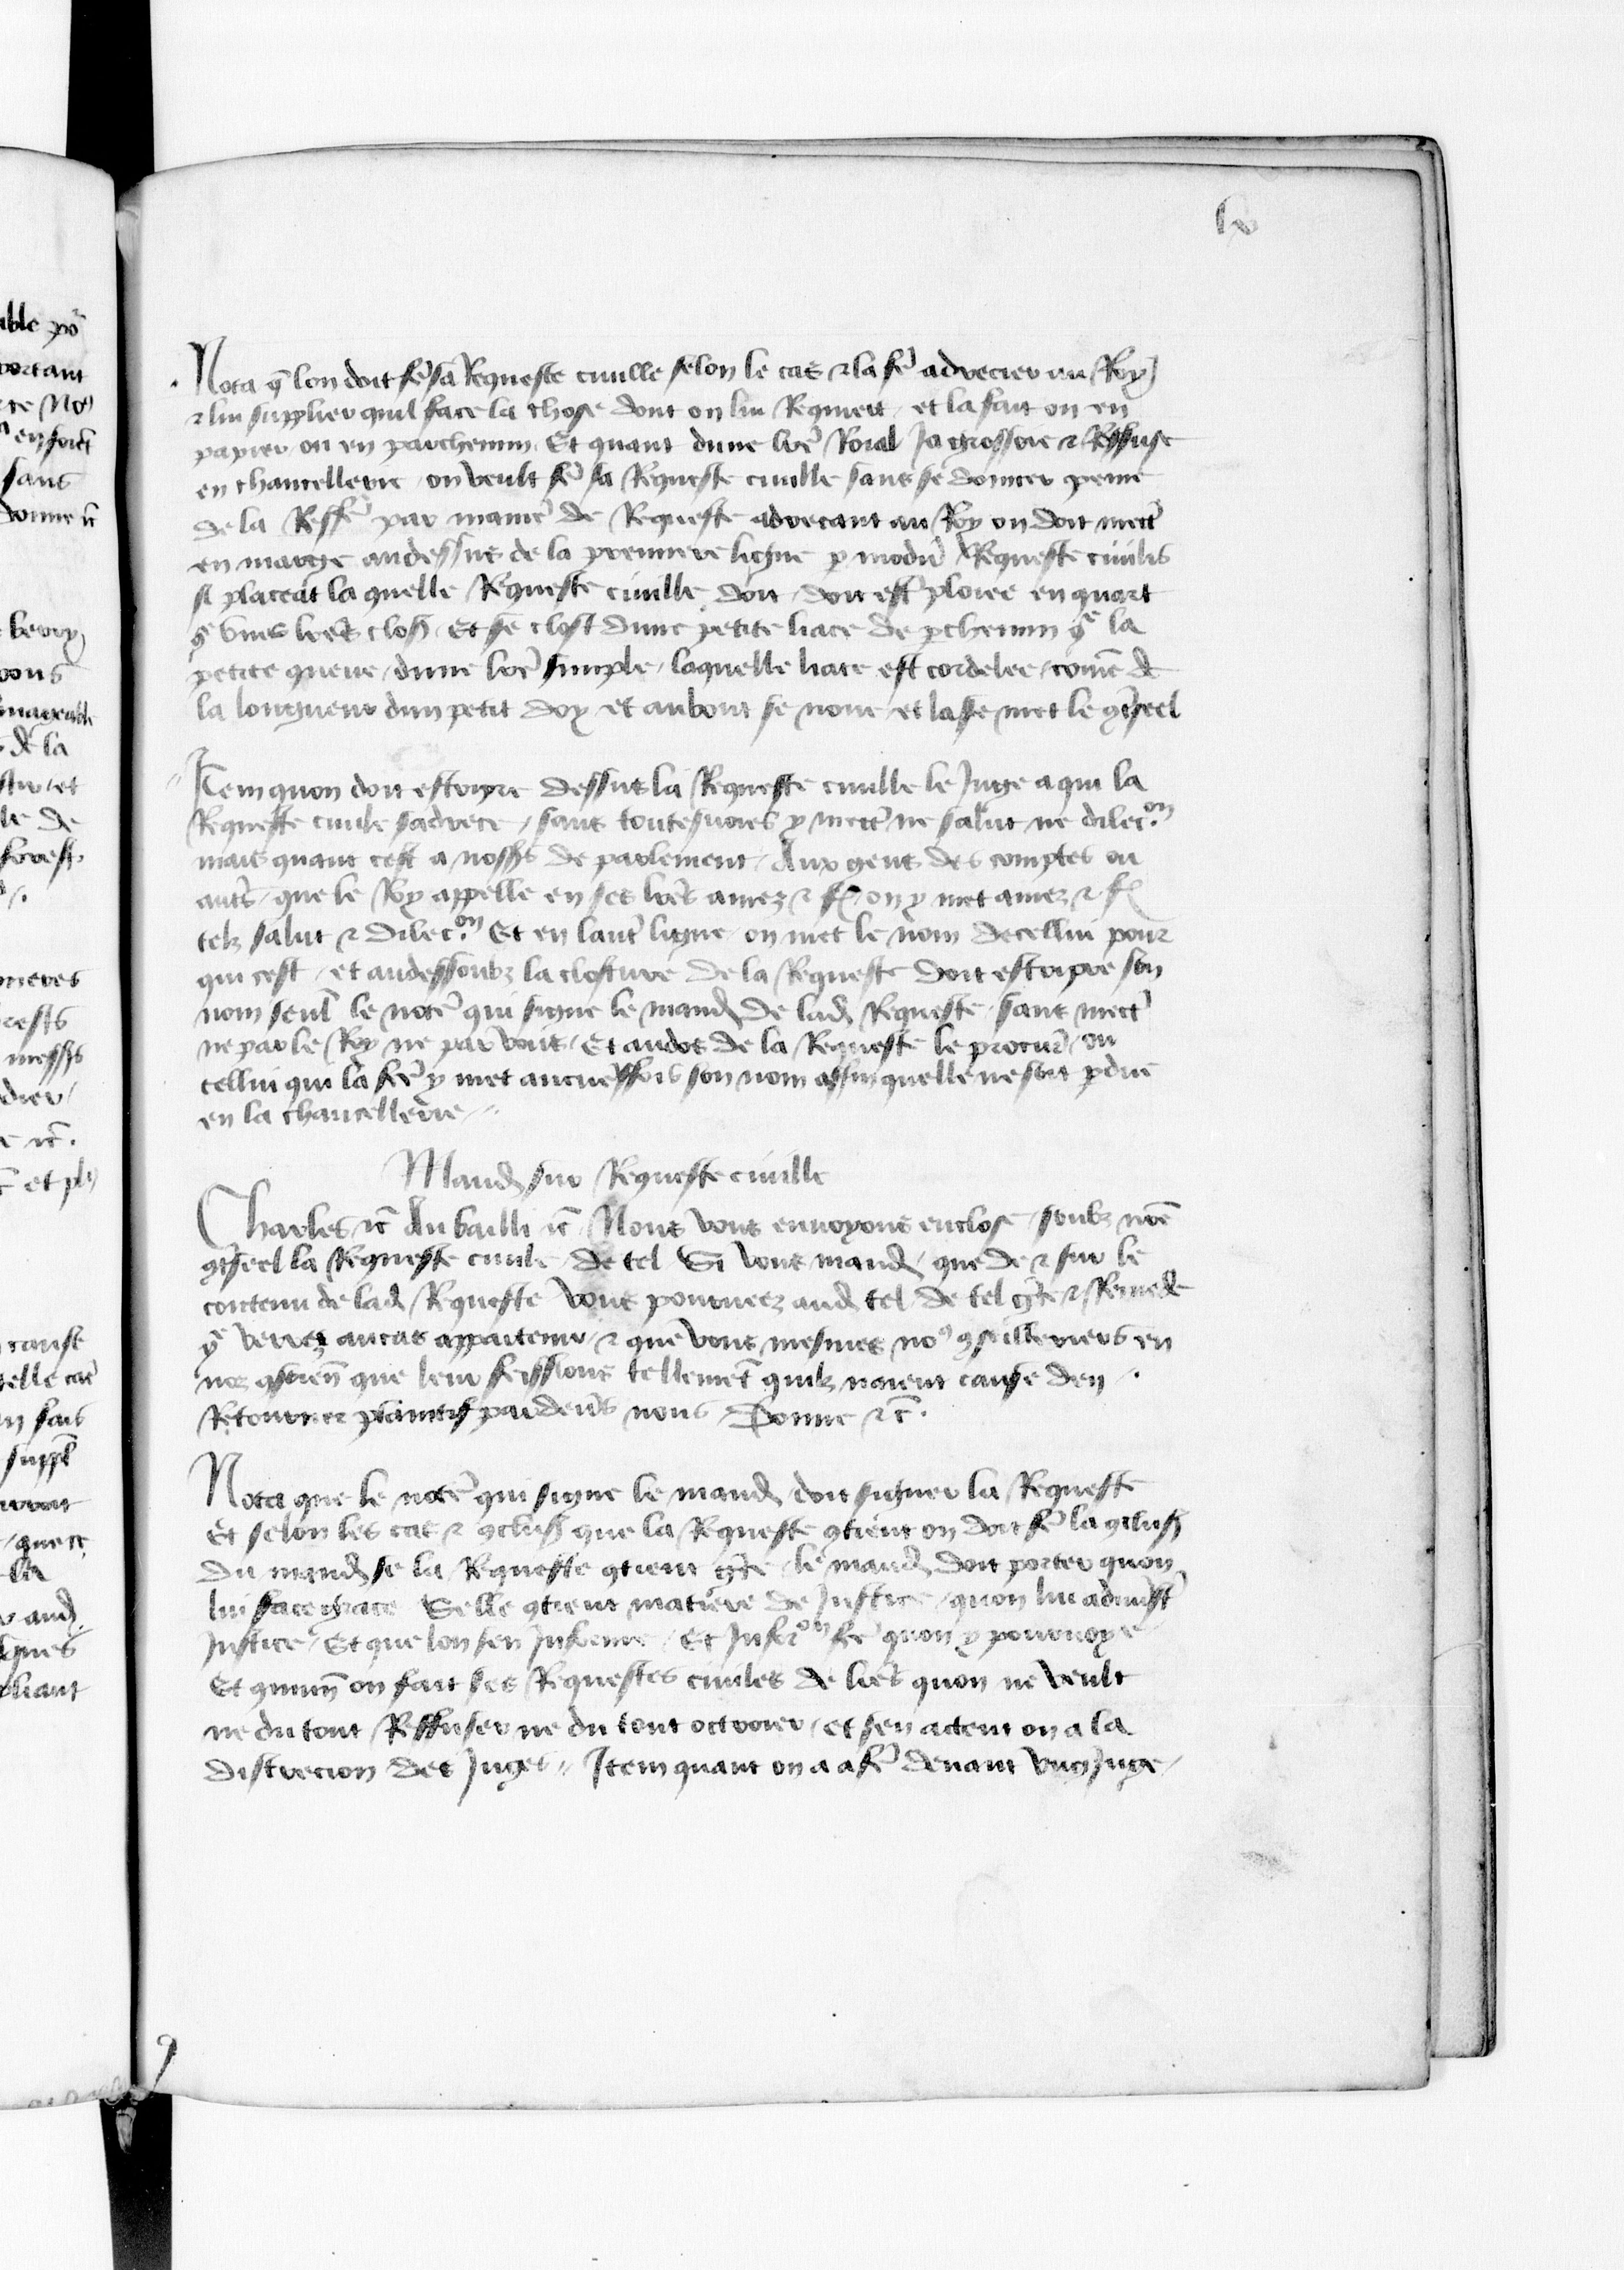 lv
Nota q̄ lon doit fe͛ sa Requeste ciuille selon le cas ⁊ la fe͛ adrecier au Roy
⁊ lui supplier quil face la chose dont on lui Requiert / et la fait on en
papier ou en parchemin. Et quant dune lr̄e Roial Ja grossoie ⁊ Reffuse
en chancellerie on veult fe͛ sa Requeste ciuille sans se donner peine
de la Reffe͛ par manie͛ de Requeste adrecant au Roy on doit mect͛
en marge audessus de la premiere ligne p modū Requeste ciuilis
si placeat la quelle Requeste ciuille doit / doit est͛ ploiee en quart
9e vnes lr̄es closes. Et se clost dune petite liace de pchemin 9e la
petite queue / dune lr̄e simple / laquelle liace est cordelee / com̄e de
la longueur dun petit doy et au bout se noue et la se met le 9t͛seel
Item quon doit escripre dessus la Requeste ciuille le Juge a qui la
Requeste ciuile sadrece / sans toutesuoies y mect͛ ne salut ne dilec.on
mais quant cest a noss͛s de parlement / Aux gens des comptes ou
aut͛s / que le Roy appelle en ses lr̄es amez ⁊ f / on y met amez ⁊ f
telz salut ⁊ dilec.on Et en laut͛ ligne / on met le nom decellui pour
qui cest / et audessoubz la closture de la Requeste doit escripre son
nom seul̄ le note͛ qui signe le mand de lad Requeste / sans mect͛
ne par le Roy ne par vous / Et au dos de la Requeste le procur͛ / ou
cellui qui la fe͛ y met aucuneffois son nom affin quelle ne soit pdue
en la chancellerie //
Mand sur Requeste ciuille
Charles ⁊c̄ Au bailli ⁊c̄ Nous vous enuoyons enclose / soubz nr̄e
9t͛seel la Requeste ciuile / de tel Si vous mand / que de ⁊ sur le
contenu de lad Requeste vous pourueez aud tel / de tel gr̄e ⁊ Remede
9e verrez au cas appartenir / ⁊ que vous mesmes no9 9seilleriers en
noz 9scien̄ que leur feissions tellemēt quilz naient cause den /.
Retourner plaintifs pardeu͛s nous / Donne ⁊c̄.
Nota que le note͛ qui signe le mand / doit signer la Requeste
Et selon les cas ⁊ 9clus que la Requeste 9tient on doit fe͛ la 9clus
du mand se la Requeste 9tient gr̄e / le mand doit porter quon
lui face grace Selle 9tient matiere de Justice / quon lui admist͛
Justice / Et que lon sen Informe / Et Infor.on fe͛ quon y pouruoye
Et 9mun̄ on fait ses Requestes ciuiles de lr̄es quon ne veult
ne du tout Reffuser ne du tout octroier / et sen actent on a la
discrecion des Juges // Item quant on a a fe͛ deuant vng Juge /